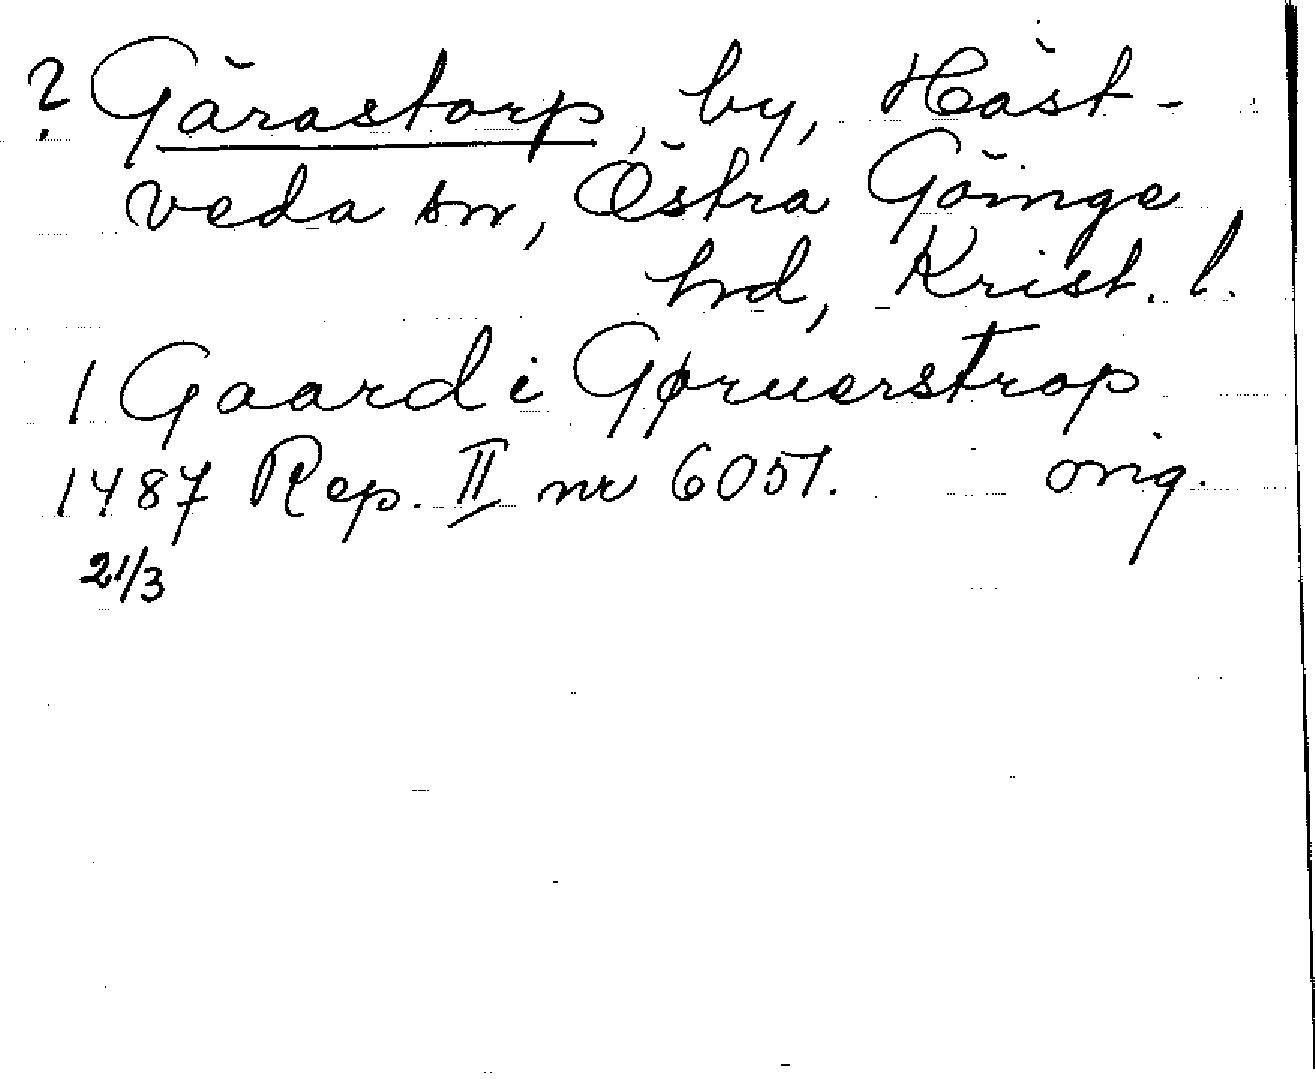 ? Gärastorp, by, Häst-
veda sn, Östra Göinge
hrd, Krist. l.
1 Gaard i Gøruerstrop
1487 Rep. II nr 6051. orig.
21/3